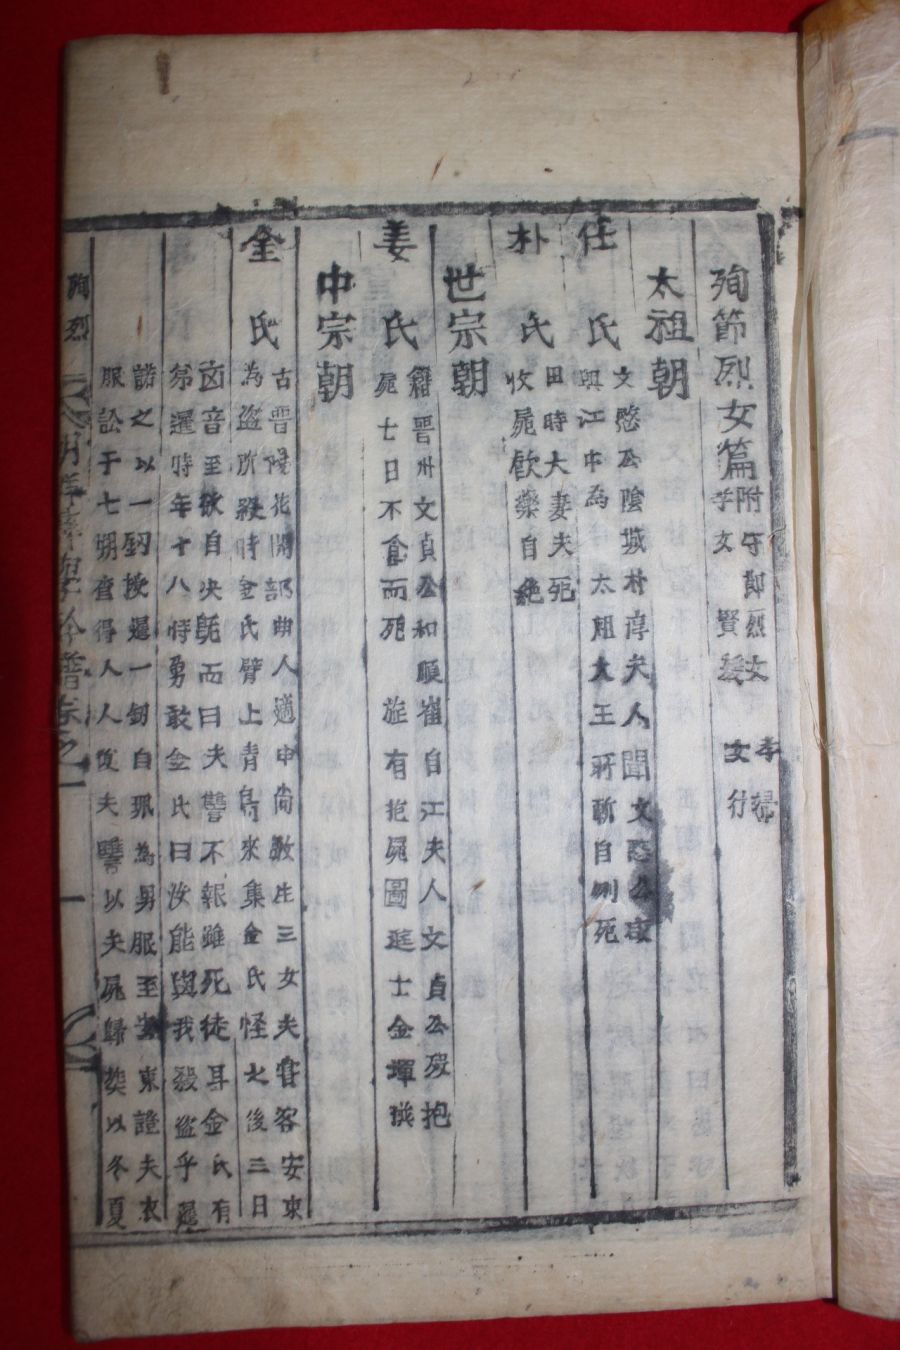 殉節烈女篇
附守節烈女 孝婦
學文 賢媛 女行
太祖朝
任氏
文愍公陰城朴淳夫人聞文愍公卒
與江中為太祖大王所 自刎死
朴氏
田時大妻夫死
收屍飮藥自絶
世宗朝
姜氏
籍晋州文貞公和順崔自江夫人文貞公歿抱
屍七日不食而死 旌有抱屍圖 進士金
中宗朝
金氏
古晋陽花開部曲人適中尚敎生三女夫
客安東
為盗所殺時金氏臂上青鳥來集金氏怪之後三日
凶音至欲自决旣而曰夫讐不報雖死徒耳金氏有
弟暹時年十八恃勇敢金氏曰汝能與我殺盗乎暹
諾之以一釰授暹一釰自佩為男服至安東證夫衣
服訟于七朔 得人人復夫讐以夫屍歸葬以冬夏
殉烈
卷之一
一